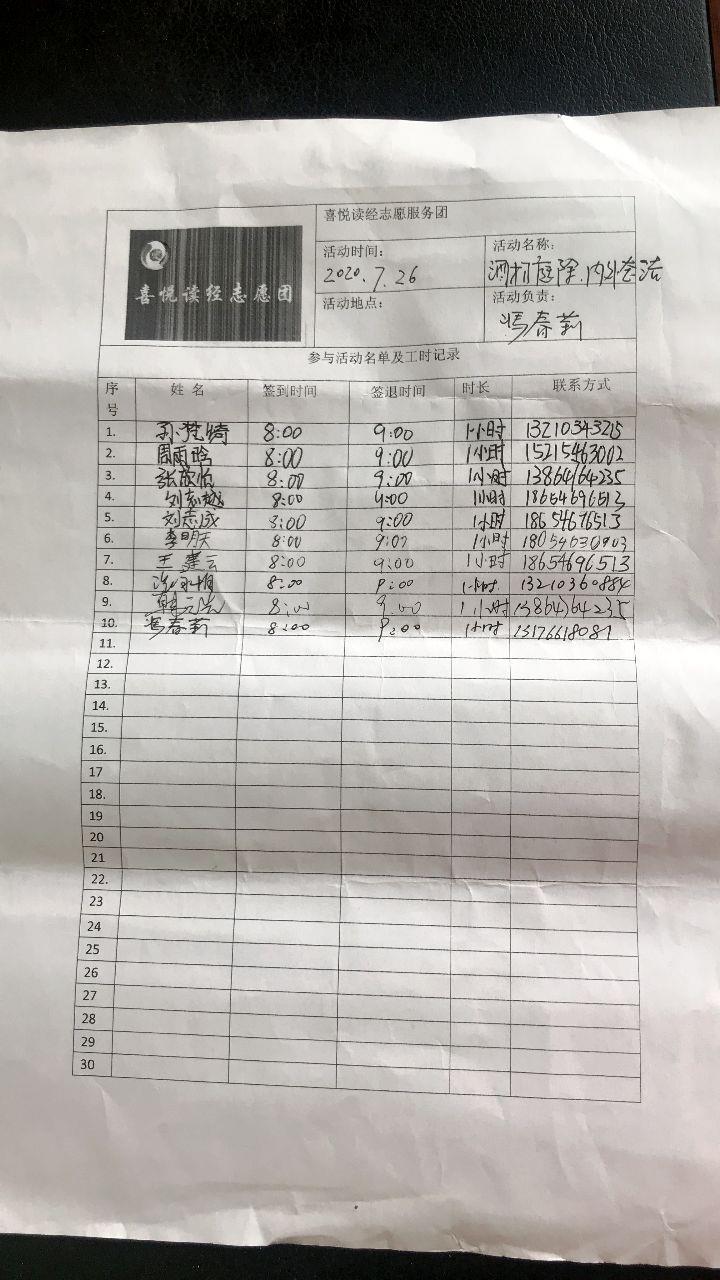 喜悦读经志愿服务团
喜悦读经志愿团
活动时间: 2020.7.26
活动名称: 洒扫庭除.内外整洁
活动地点:
活动负责: 冯春莉
参与活动名单及工时记录
序号 姓名 签到时间 签退时间 时长 联系方式
1. 8:00 9:00 1小时 13210343215
2. 周雨晗 8:00 9:00 1小时 15215463002
3. 张欣怡 8:00 9:00 1小时 13864164235
4. 刘志越 8:00 9:00 1小时 18654696513
5. 刘志成 8:00 9:00 1小时 18654676513
6. 李明天 8:00 9:00 1小时 18054630903
7. 王建云 8:00 9:00 1小时 18654696513
8. 8:00 9:00 1小时 13210360884
9. 韩元浩 8:00 9:00 1小时 13864364235
10. 冯春莉 8:00 9:00 1小时 13176618081
11.
12.
13.
14.
15.
16.
17
18.
19
20
21
22.
23
24
25
26
27
28
29
30